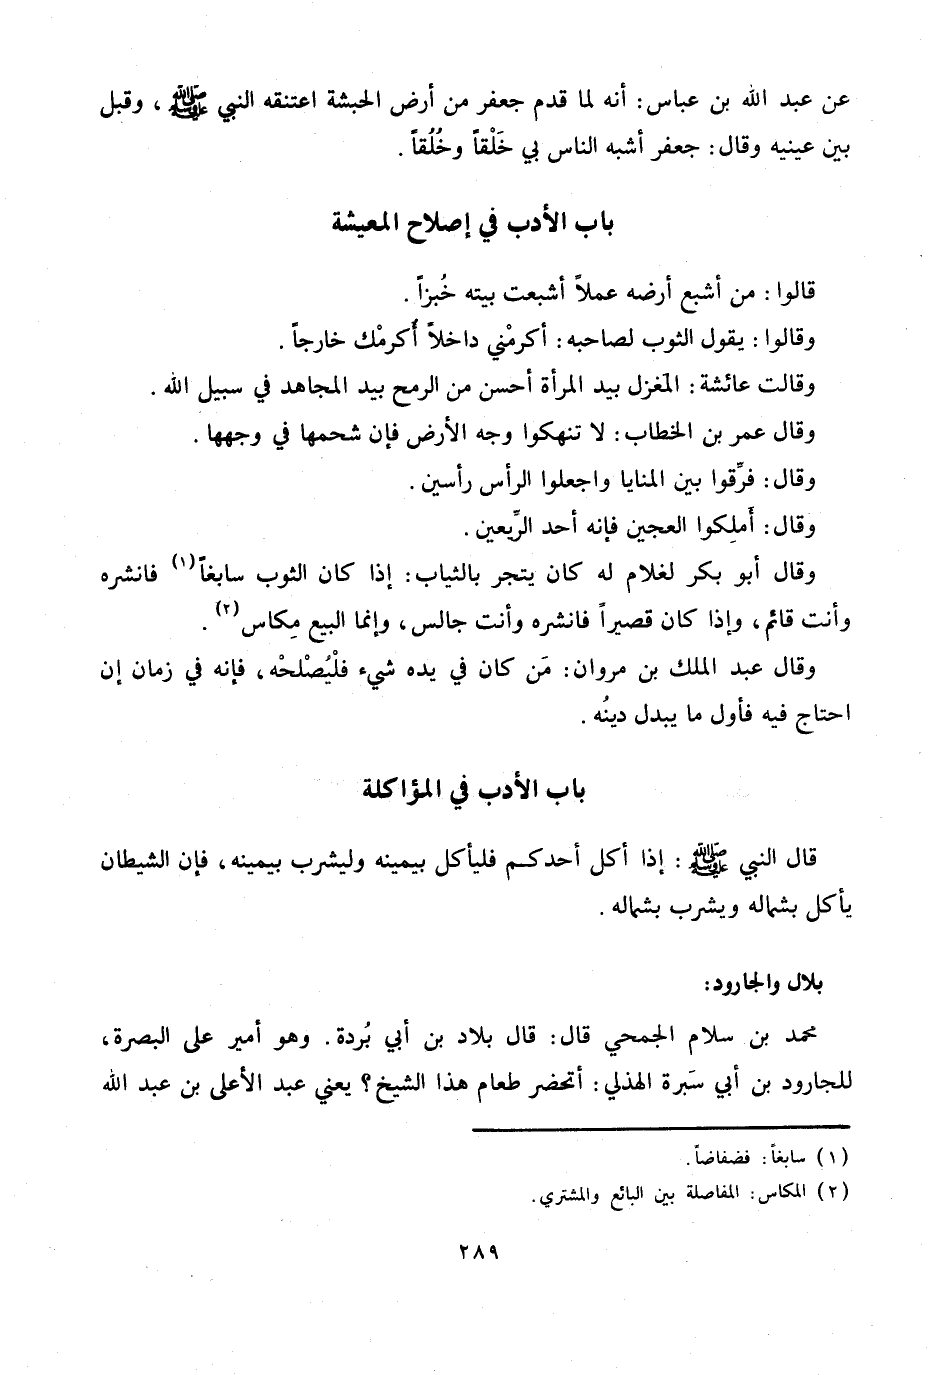 عن عبد الله بن عباس: أنه لما قدم جعفر من أرض الحبشة اعتنقه النبي ﷺ، وقبل
بين عينيه وقال: جعفر أشبه الناس بي خَلْقاً وخُلُقاً.
باب الأدب في إصلاح المعيشة
قالوا: من أشبع أرضه عملاً أشبعت بيته خُبزاً.
وقالوا: يقول الثوب لصاحبه: أكرمْني داخلاً أُكرمْك خارجاً.
وقالت عائشة: المَغزل بيد المرأة أحسن من الرمح بيد المجاهد في سبيل الله.
وقال عمر بن الخطاب: لا تنهكوا وجه الأرض فإن شحمها في وجهها.
وقال: فرِّقوا بين المنايا واجعلوا الرأس رأسين.
وقال: أَملِكوا العجين فإنه أحد الرِّيعين.
وقال أبو بكر لغلام له كان يتجر بالثياب: إذا كان الثوب سابغاً(١) فانشره
وأنت قائم، وإذا كان قصيراً فانشره وأنت جالس، وإنما البيع مِكاس(٢).
وقال عبد الملك بن مروان: مَن كان في يده شيء فلْيُصْلحْه، فإنه في زمان إن
احتاج فيه فأول ما يبدل دينُه.
باب الأدب في المؤاكلة
قال النبي ﷺ: إذا أكل أحدكم فليأكل بيمينه وليشرب بيمينه، فإن الشيطان
يأكل بشماله ويشرب بشماله.
بلال والجارود:
محمد بن سلام الجمحي قال: قال بلاد بن أبي بُردة. وهو أمير على البصرة،
للجارود بن أبي سَبرة الهذلي: أتحضر طعام هذا الشيخ؟ يعني عبد الأعلى بن عبد الله
(١) سابغاً: فضفاضاً.
(٢) المكاس: المفاصلة بين البائع والمشتري.
٢٨٩